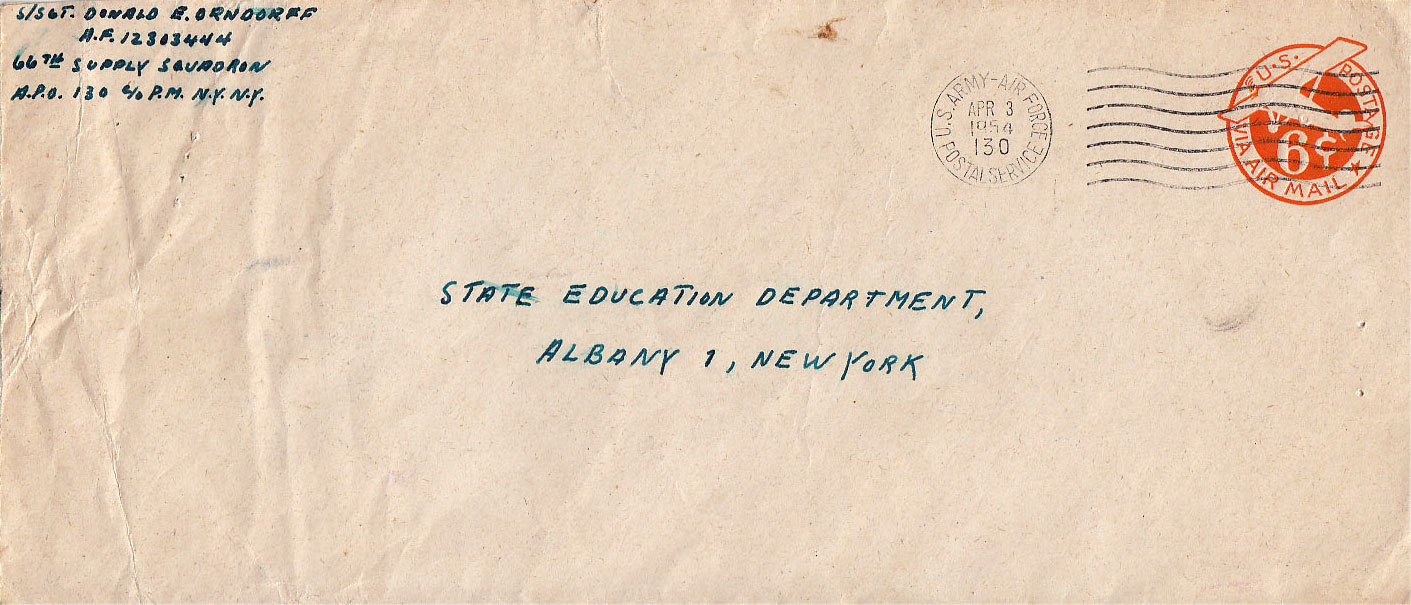 S/SGT. DONALD E. ORNDORFF
A.F. 12303444
66TH SUPPLY SQUADRON
A.P.O. 130 c/o P.M. N.Y. N.Y.
U.S. ARMY-AIR FORCE
APR 3
1954
130
POSTAL SERVICE
U.S. POSTAGE
6¢
VIA AIR MAIL
STATE EDUCATION DEPARTMENT,
ALBANY 1, NEW YORK